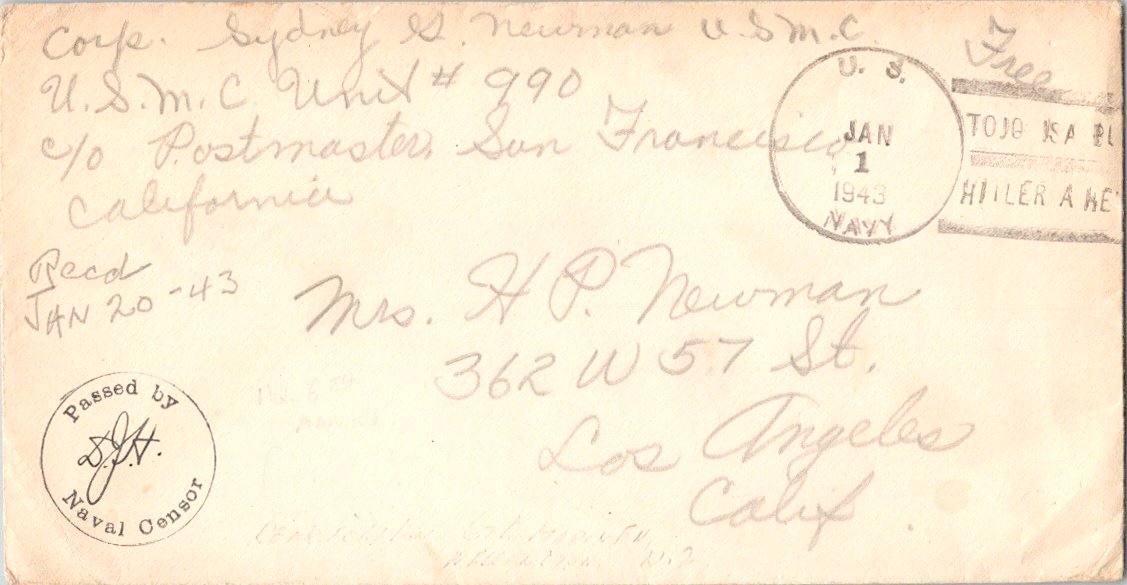 Corp. Sydney G. Newman U.S.M.C.
U.S.M.C. Unit # 990
c/o Postmaster, San Francisco
California
Free
U. S.
JAN
1
1943
NAVY
TOJO IS A BU
HITLER A HE
Recd
JAN 20-43
Mrs. H P. Newman
362 W 57 St.
Los Angeles
Calif.
Passed by
D.J.H.
Naval Censor